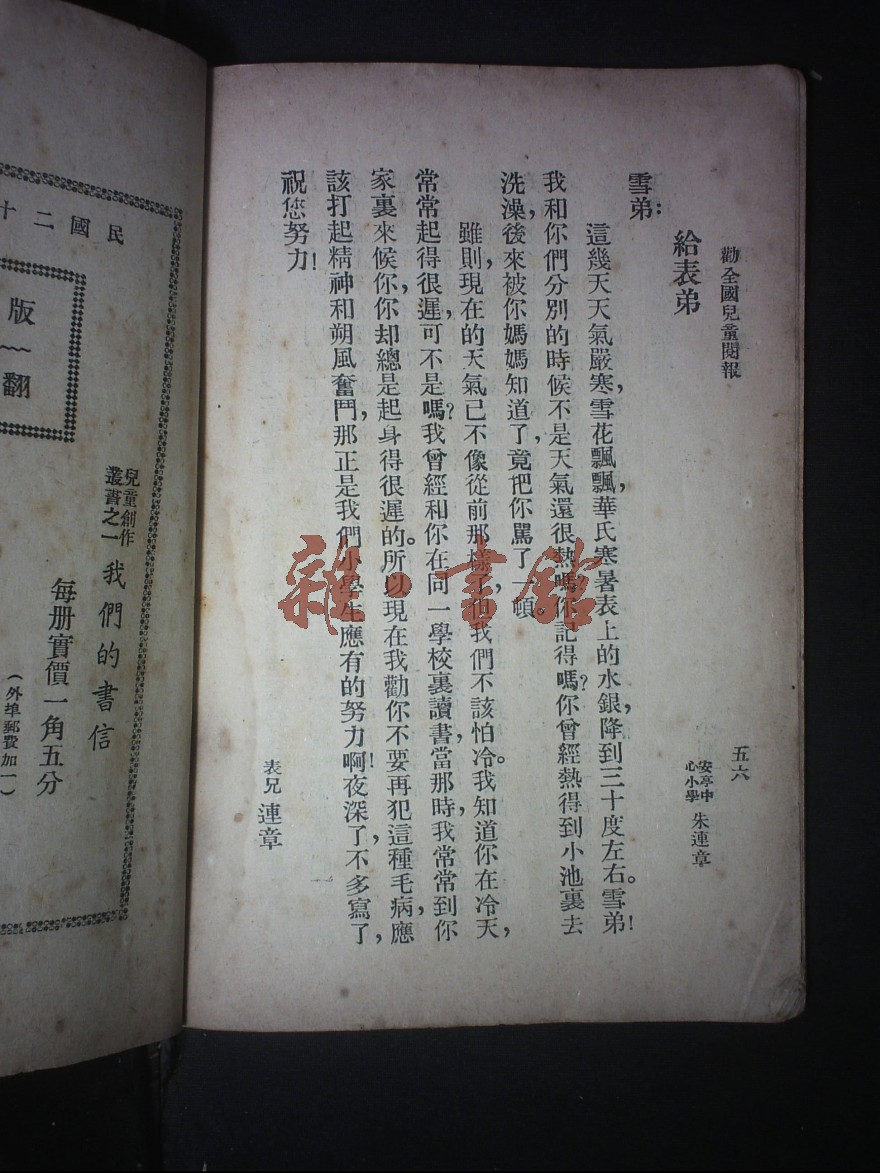 勸全國兒童閱報
五六
給表弟
安亭中心小學 朱連章
雪弟：
這幾天天氣嚴寒，雪花飄飄，華氏寒暑表上的水銀，降到三十度左右。雪弟！
我和你們分別的時候不是天氣還很熱嗎？你記得嗎？你曾經熱得到小池裏去
洗澡，後來被你媽媽知道了，竟把你罵了一頓。
雖則，現在的天氣已不像從前那樣了，但我們不該怕冷。我知道你在冷天，
常常起得很遲，可不是嗎？我曾經和你在同一學校裏讀書，當那時，我常常到你
家裏來候你，你却總是起身得很遲的。所以現在我勸你不要再犯這種毛病，應
該打起精神和朔風奮鬥，那正是我們小學生應有的努力啊！夜深了，不多寫了，
祝您努力！
表兄 連章
民國二十
版
翻
兒童創作叢書之一 我們的書信
每册實價一角五分
（外埠郵費加一）
雜·書館